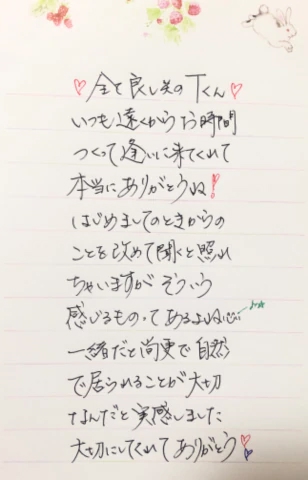 全と良し关のTくん
いつも遠くからお時間
つくって逢いに来てくれて
本当にありがとうね!
はじめましてのときからの
ことを改めて聞くと照れ
ちゃいますが そういう
感じるものって あるよね
一緒だと尚更で自然
で居られることが大切
なんだと実感しました
大切にしてくれて ありがとう!